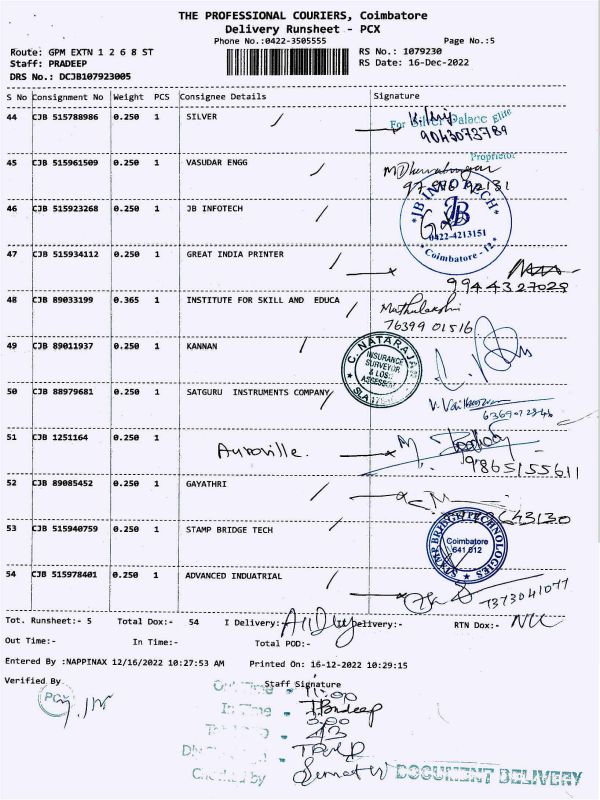 THE PROFESSIONAL COURIERS, Coimbatore
Delivery Runsheet - PCX
Phone No.:0422-3505555 Page No.:5
Route: GPM EXTN 1 2 6 8 ST RS No.: 1079230
Staff: PRADEEP RS Date: 16-Dec-2022
DRS No.: DCJB107923005
S No Consignment No Weight PCS Consignee Details Signature
44 CJB 515788986 0.250 1 SILVER
For Silver Palace Elite
9043073789
Proprietor
45 CJB 515961509 0.250 1 VASUDAR ENGG
46 CJB 515923268 0.250 1 JB INFOTECH
JB INFOTECH
JB
0422-4213151
Coimbatore - 12
47 CJB 515934112 0.250 1 GREAT INDIA PRINTER
9944327028
48 CJB 89033199 0.365 1 INSTITUTE FOR SKILL AND EDUCA
76399 01516
49 CJB 89011937 0.250 1 KANNAN
C. NATARAJAN
INSURANCE
SURVEYOR
& LOSS
ASSESSOR
50 CJB 88979681 0.250 1 SATGURU INSTRUMENTS COMPANY
51 CJB 1251164 0.250 1 Auroville.
9865155611
52 CJB 89085452 0.250 1 GAYATHRI
643130
53 CJB 515940759 0.250 1 STAMP BRIDGE TECH
STAMP BRIDGE TECHNOLOGIES
Coimbatore
641 012
54 CJB 515978401 0.250 1 ADVANCED INDUATRIAL
7373041077
Tot. Runsheet:- 5 Total Dox:- 54 I Delivery:- Delivery:- RTN Dox:- Nil
Out Time:- In Time:- Total POD:-
Entered By :NAPPINAX 12/16/2022 10:27:53 AM Printed On: 16-12-2022 10:29:15
Verified By Staff Signature
PCX
Out Time
In Time
Checked by
DOCUMENT DELIVERY